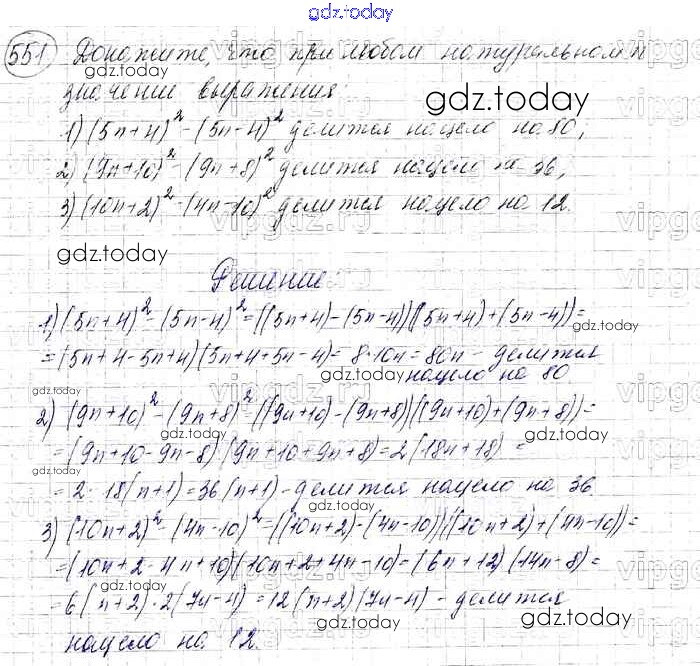 gdz.today
551 Докажите, что при любом натуральном n
значении выражения:
gdz.today
1) (5n+4)² - (5n-4)² делится нацело на 80;
2) (9n+10)² - (9n+8)² делится нацело на 36;
3) (10n+2)² - (4n-10)² делится нацело на 12.
gdz.today
gdz.today
Решение:
1) (5n+4)² - (5n-4)² = ((5n+4)-(5n-4))((5n+4)+(5n-4)) =
gdz.today
= (5n+4-5n+4)(5n+4+5n-4) = 8·10n = 80n - делится
gdz.today
нацело на 80.
gdz.today
2) (9n+10)² - (9n+8)² = ((9n+10)-(9n+8))((9n+10)+(9n+8)) =
gdz.today
gdz.today
= (9n+10-9n-8)(9n+10+9n+8) = 2(18n+18) =
gdz.today
= 2·18(n+1) = 36(n+1) - делится нацело на 36.
gdz.today
3) (10n+2)² - (4n-10)² = ((10n+2)-(4n-10))((10n+2)+(4n-10)) =
gdz.today
= (10n+2-4n+10)(10n+2+4n-10) = (6n+12)(14n-8) =
gdz.today
gdz.today
= 6(n+2)·2(7n-4) = 12(n+2)(7n-4) - делится
gdz.today
нацело на 12.